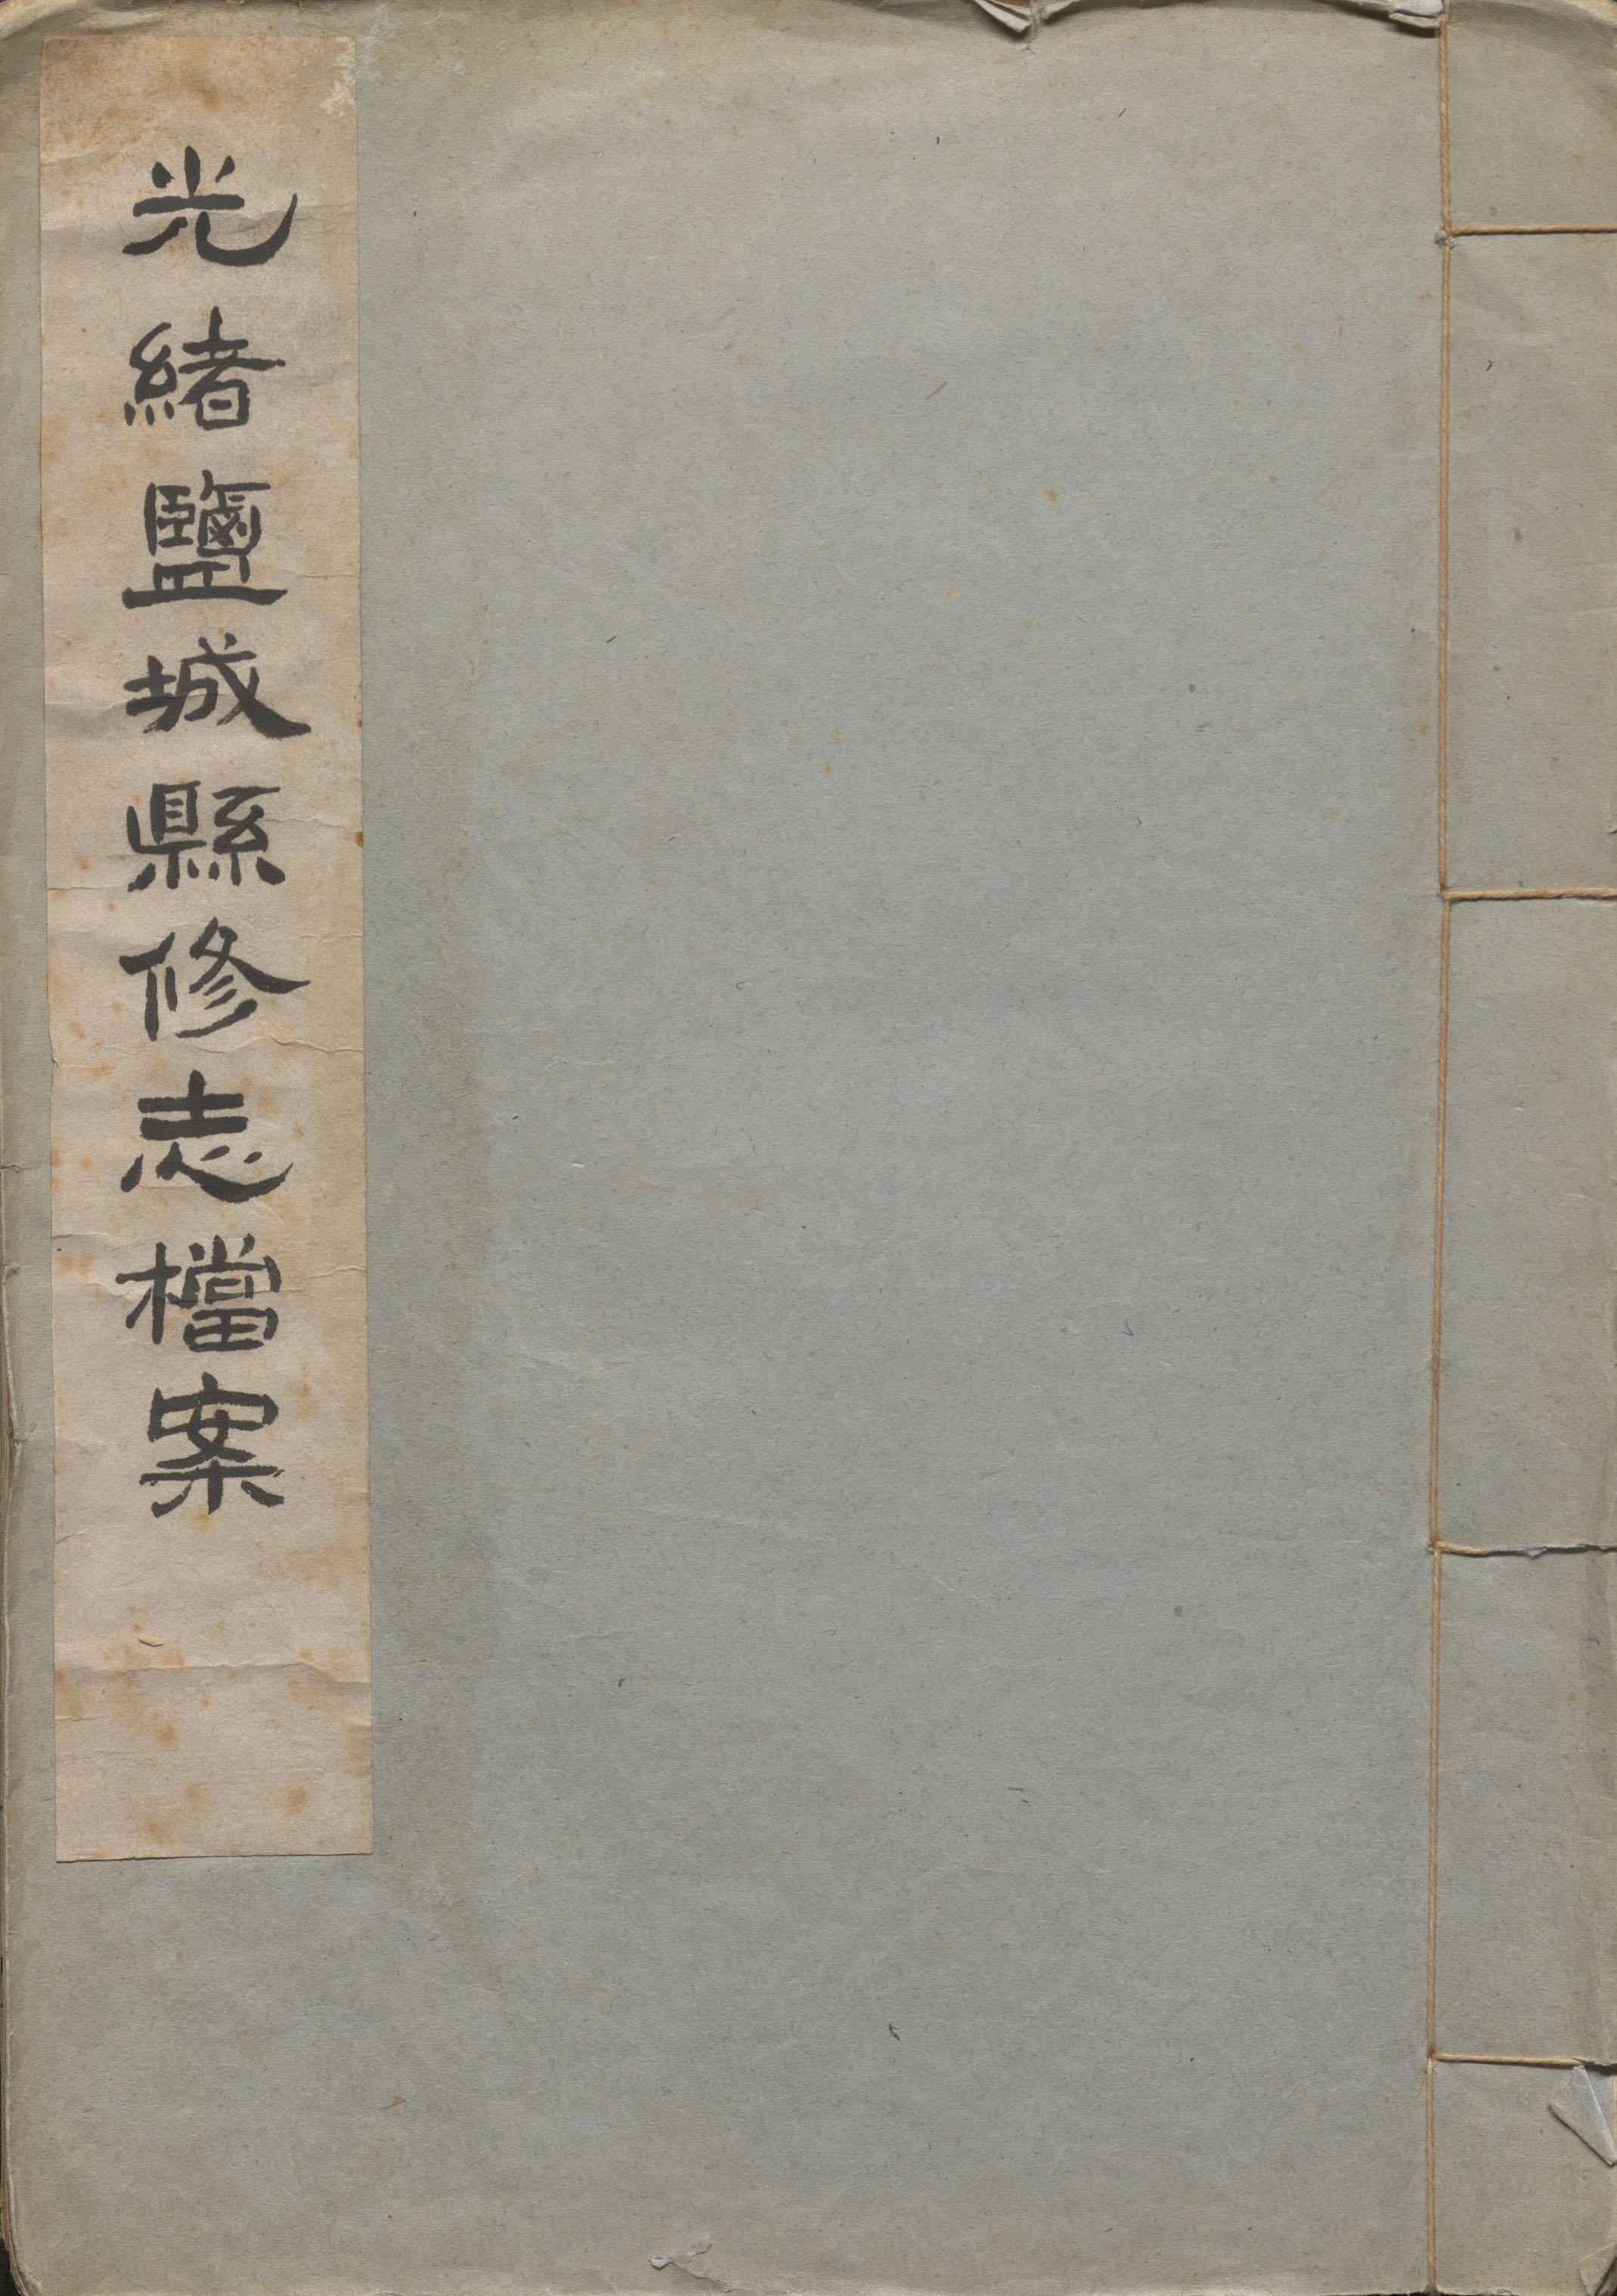 光緒鹽城縣修志檔案